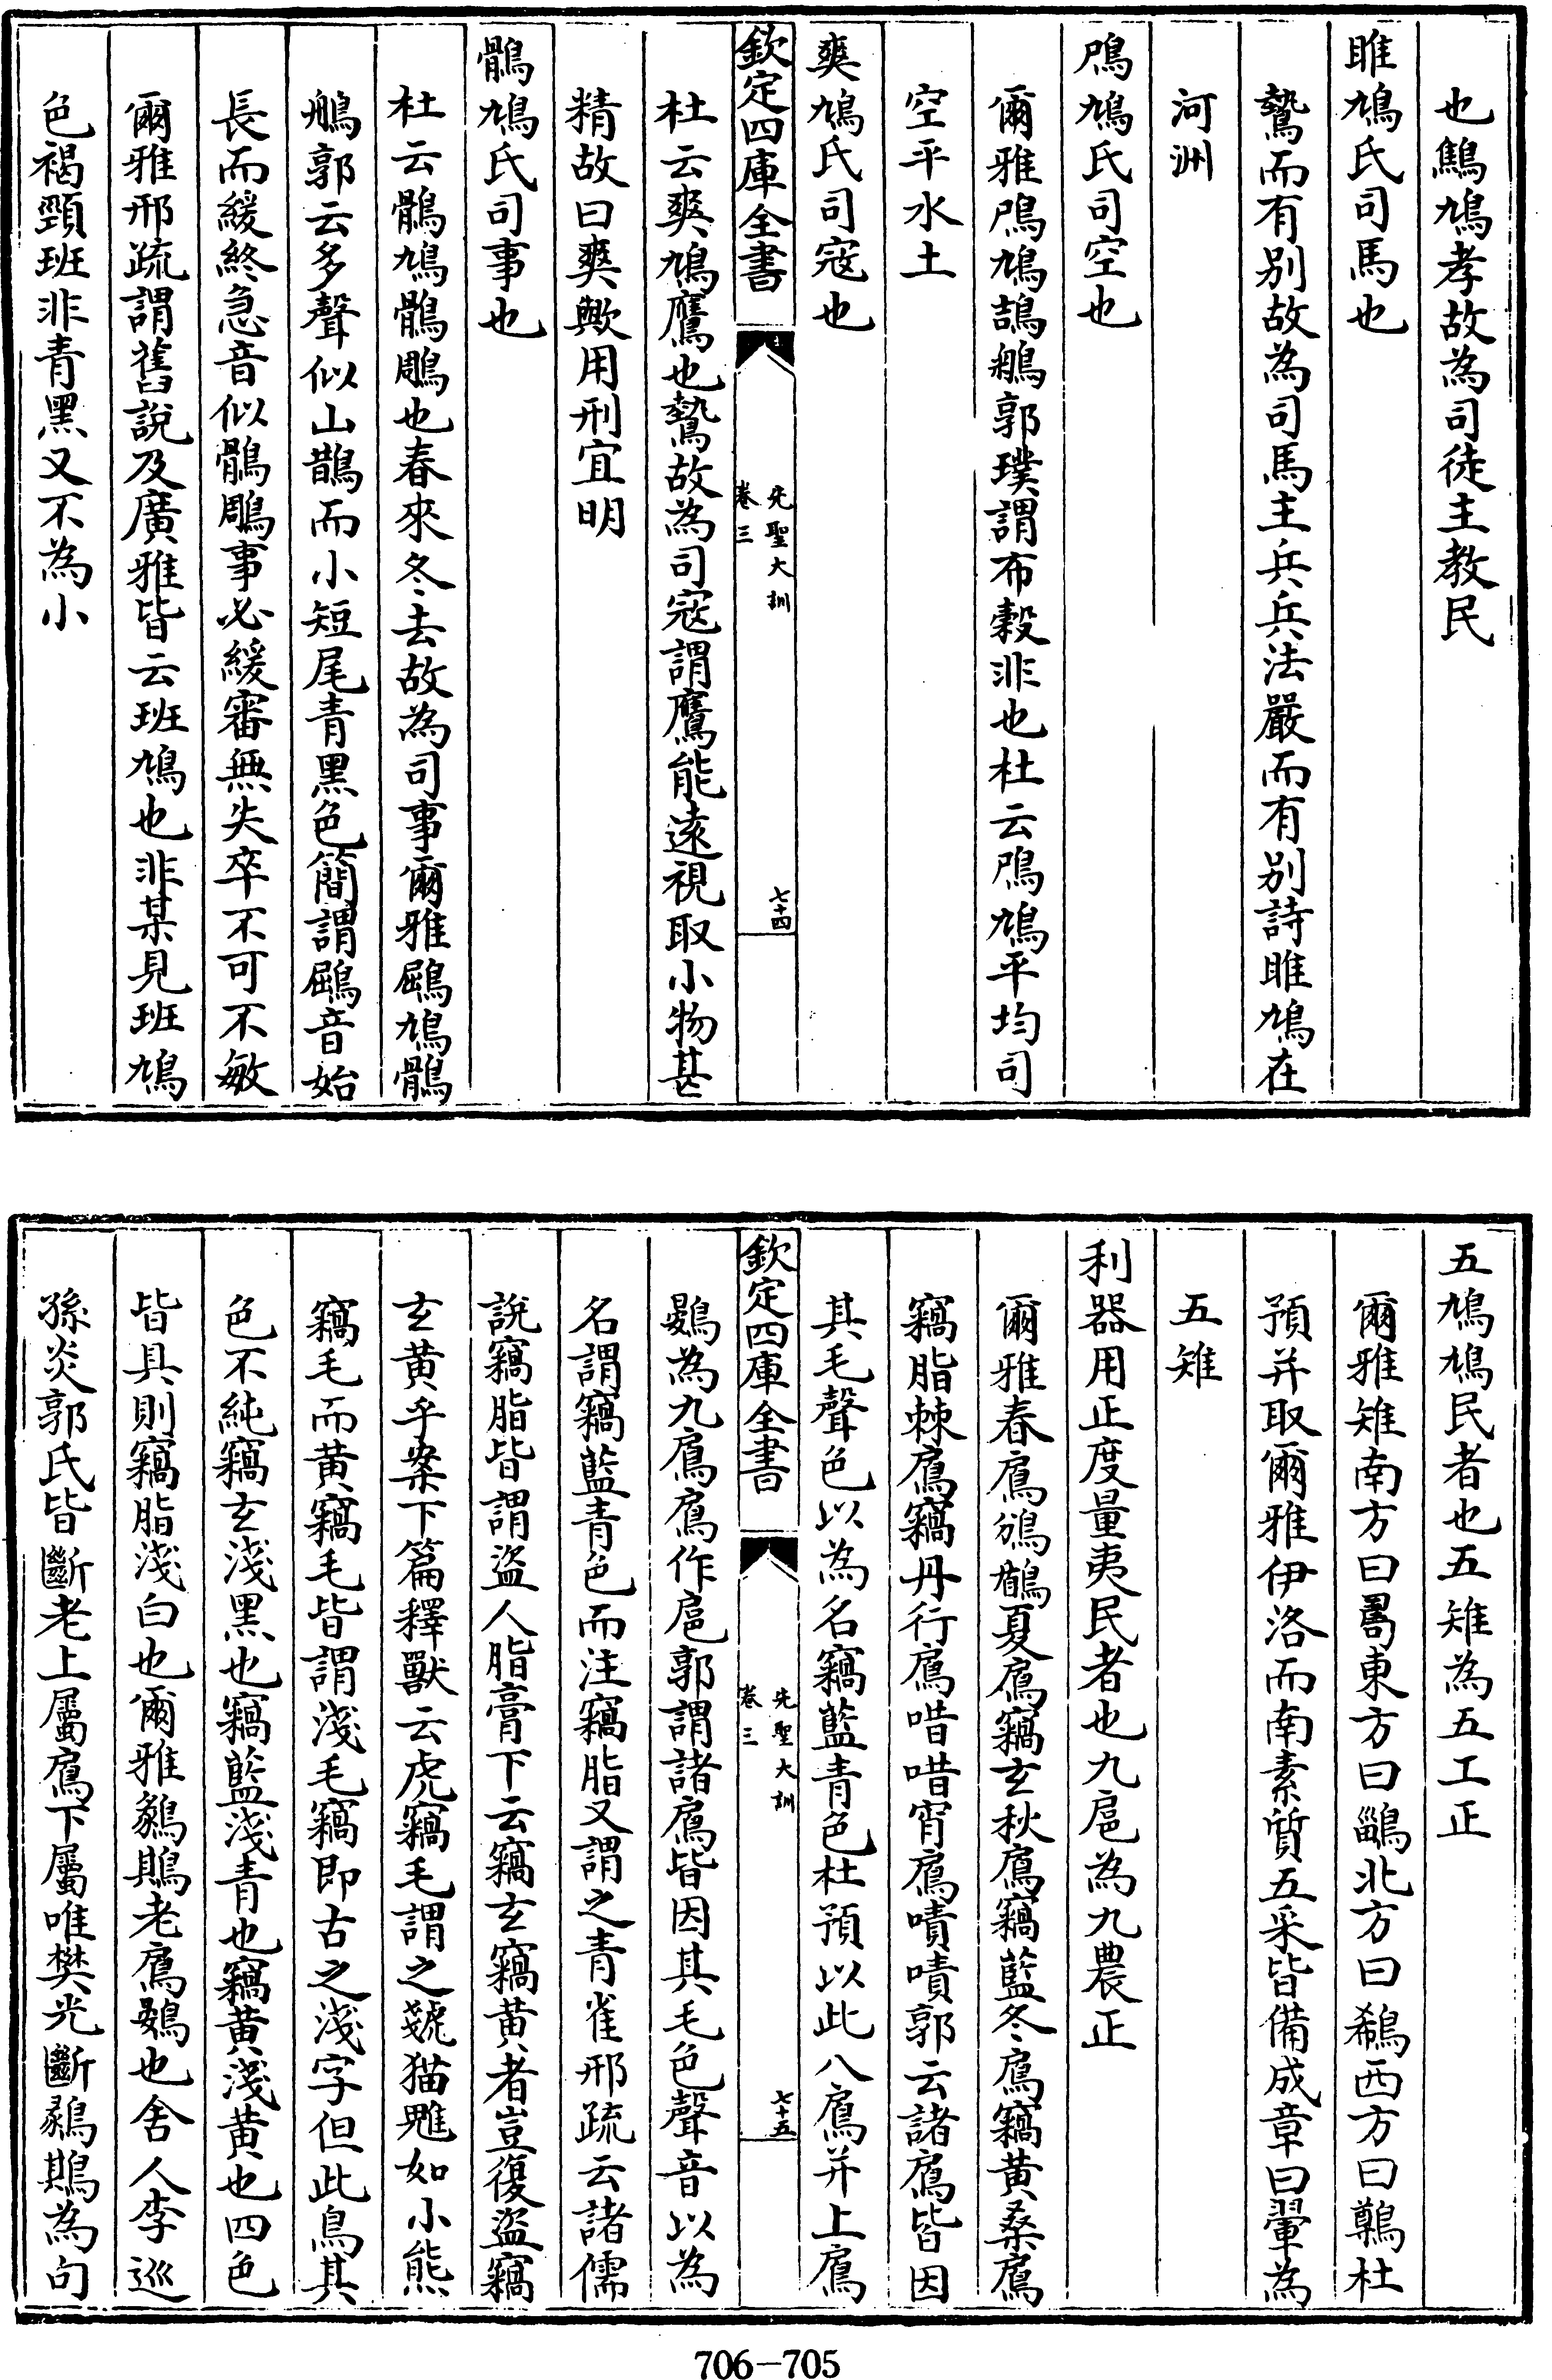 也鷦鳩孝故為司徒主教民
雎鳩氏司馬也
鷙而有别故為司馬主兵兵法嚴而有别詩雎鳩在
河洲
鳲鳩氏司空也
爾雅鳲鳩鴶鵴郭璞謂布穀非也杜云鳲鳩平均司
空平水土
爽鳩氏司寇也
欽定四庫全書
先聖大訓
卷三
七十四
杜云爽鳩鷹也鷙故為司寇謂鷹能遠視取小物甚
精故曰爽歟用刑宜明
鶻鳩氏司事也
杜云鶻鳩鶻鵰也春來冬去故為司事爾雅鶌鳩鶻
鵃郭云多聲似山鵲而小短尾青黑色簡謂鶌音始
長而緩終急音似鶻鵰事必緩審無失卒不可不敏
爾雅邢疏謂舊說及廣雅皆云班鳩也非某見班鳩
色褐頸班非青黑又不為小
五鳩鳩民者也五雉為五工正
爾雅雉南方曰𠷎東方曰鶅北方曰鵗西方曰鷷杜
預并取爾雅伊洛而南素質五采皆備成章曰翬為
五雉
利器用正度量夷民者也九扈為九農正
爾雅春鳸鳻鶞夏鳸竊玄秋鳸竊藍冬鳸竊黄桑鳸
竊脂棘鳸竊丹行鳸唶唶宵鳸嘖嘖郭云諸鳸皆因
其毛聲色以為名竊藍青色杜預以此八鳸并上鳸
欽定四庫全書
先聖大訓
卷三
七十五
鷃為九鳸鳸作扈郭謂諸鳸皆因其毛色聲音以為
名謂竊藍青色而注竊脂又謂之青雀邢疏云諸儒
說竊脂皆謂盜人脂膏下云竊玄竊黄者豈復盜竊
玄黄乎案下篇釋獸云虎竊毛謂之虦猫魋如小熊
竊毛而黄竊毛皆謂淺毛竊即古之淺字但此鳥其
色不純竊玄淺黑也竊藍淺青也竊黄淺黄也四色
皆具則竊脂淺白也爾雅鳹鶀老鳸鷃也舍人李巡
孫炎郭氏皆斷老上屬鳸下屬唯樊光斷鳹鶀為句
706-705